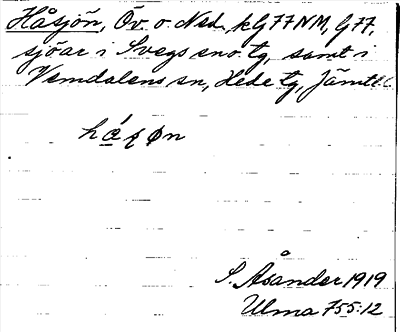 Håsjön, Öv. o. Ned., kG77NM, G77,
sjöar i Svegs sno tg, samt i
Vemdalens sn, Hede tg, Jämtl.
håsøn
S. Åsander 1919
Ulma 755:12